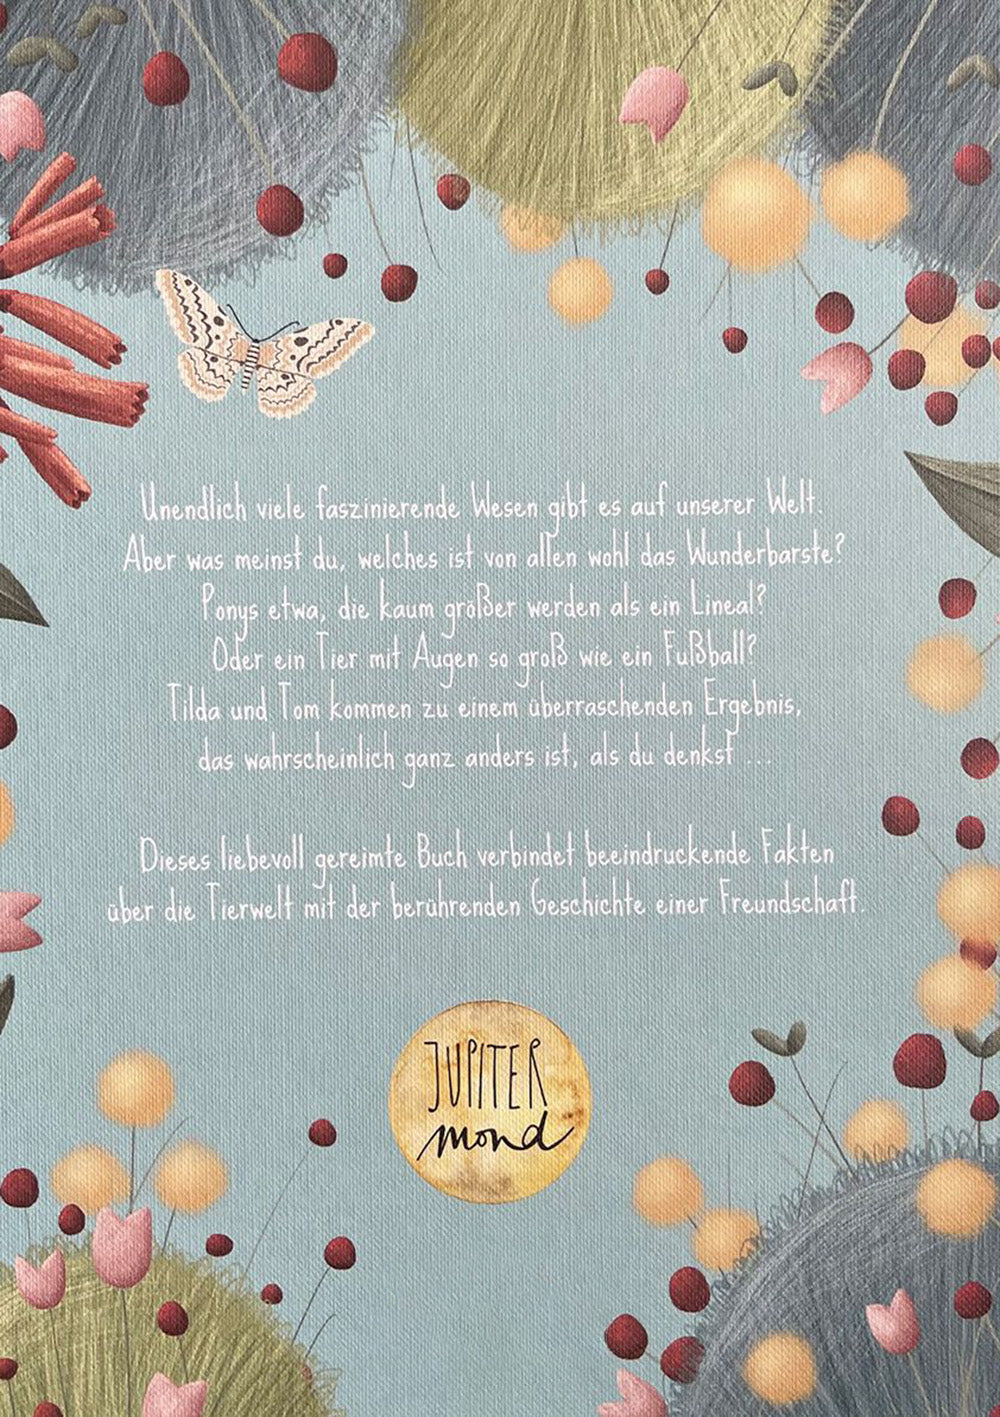 Unendlich viele faszinierende Wesen gibt es auf unserer Welt.
Aber was meinst du, welches ist von allen wohl das Wunderbarste?
Ponys etwa, die kaum größer werden als ein Lineal?
Oder ein Tier mit Augen so groß wie ein Fußball?
Tilda und Tom kommen zu einem überraschenden Ergebnis,
das wahrscheinlich ganz anders ist, als du denkst ...
Dieses liebevoll gereimte Buch verbindet beeindruckende Fakten
über die Tierwelt mit der berührenden Geschichte einer Freundschaft.
JUPITER
mond